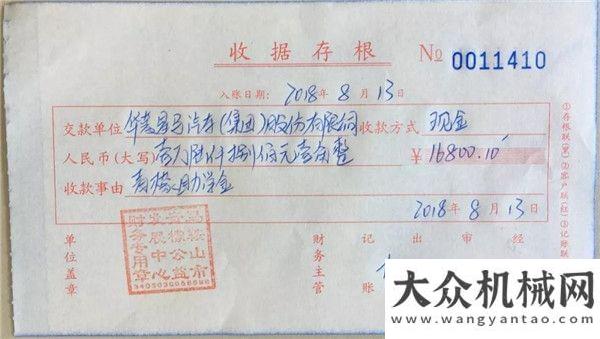 收据存根 № 0011410
入账日期：2018年8月13
交款单位 华菱星马汽车(集团)股份有限公司 收款方式 现金
人民币(大写) 壹万陆仟捌佰元壹角整 ￥16800.10
收款事由 助学金
2018年8月13日
单位盖章 财务主管 记账 出 审 经
马鞍山市
公益
发展中心
财务专用章
①存根联(黑)②客户联(红)③记账联
大众机械网
www.wangyantao.com